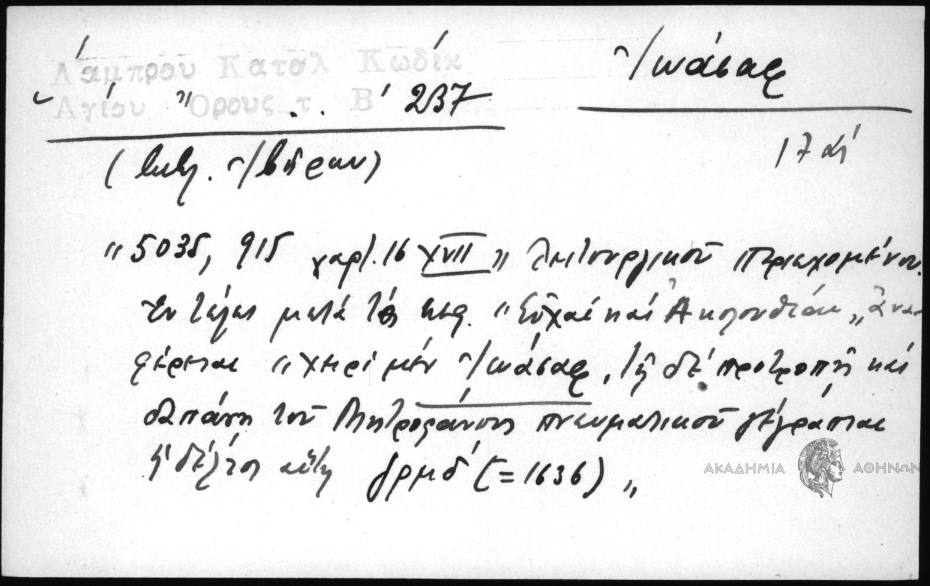 Λάμπρου Κατάλ Κώδικ
Ἁγίου Ὄρους τ. Β΄ 237
Ἰωάσαφ
(βιβλ. Ἰβήρων)
17 αἰ
"5035, 915 χαρτ. 16 XVII" λειτουργικοῦ περιεχομένου.
Ἐν τέλει μετὰ τὸ κεφ. "Εὐχαὶ καὶ Ἀκολουθίαι" ἀνα-
φέρεται "χειρὶ μὲν Ἰωάσαφ, τῇ δὲ προτροπῇ καὶ
δαπάνῃ τοῦ Μητροφάνους πνευματικοῦ γέγραπται
ἡ δέλτος αὕτη ζρμδ΄ (=1636)"
ΑΚΑΔΗΜΙΑ ΑΘΗΝΩΝ